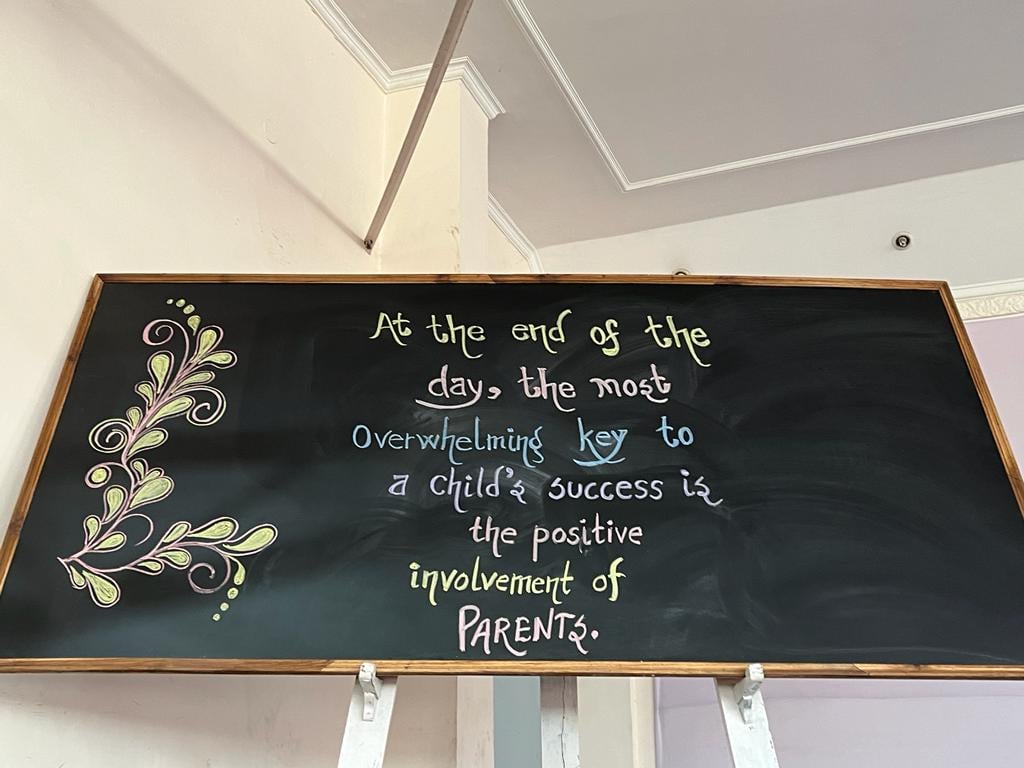 At the end of the
day, the most
Overwhelming key to
a child's success is
the positive
involvement of
PARENTS.